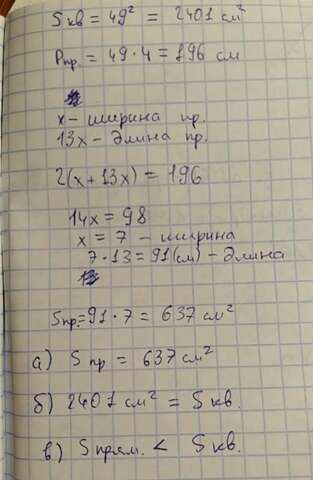 Sкв = 49² = 2401 см²
Pпр. = 49 · 4 = 196 см
x – ширина пр.
13x – длина пр.
2(x + 13x) = 196
14x = 98
x = 7 – ширина
7 · 13 = 91 (см) – длина
Sпр. = 91 · 7 = 637 см²
а) Sпр = 637 см²
б) 2401 см² = Sкв.
в) Sпрям. < Sкв.